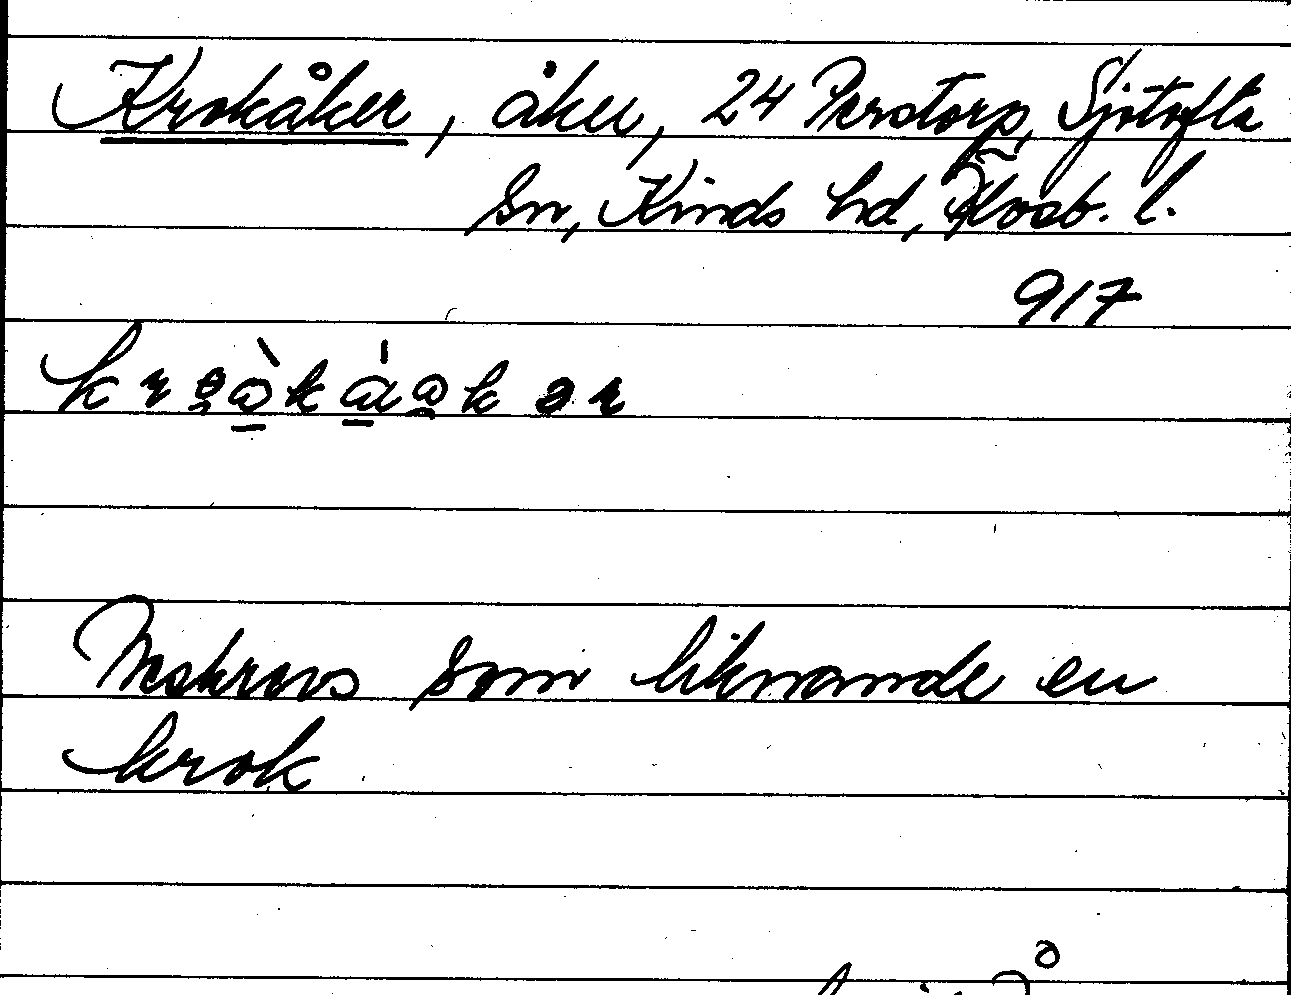 Krokåker, åker, 24 Perstorp, Sjötofta
sn, Kinds hd, Älvsb. l.
917
Beskrevs som liknande en
krok